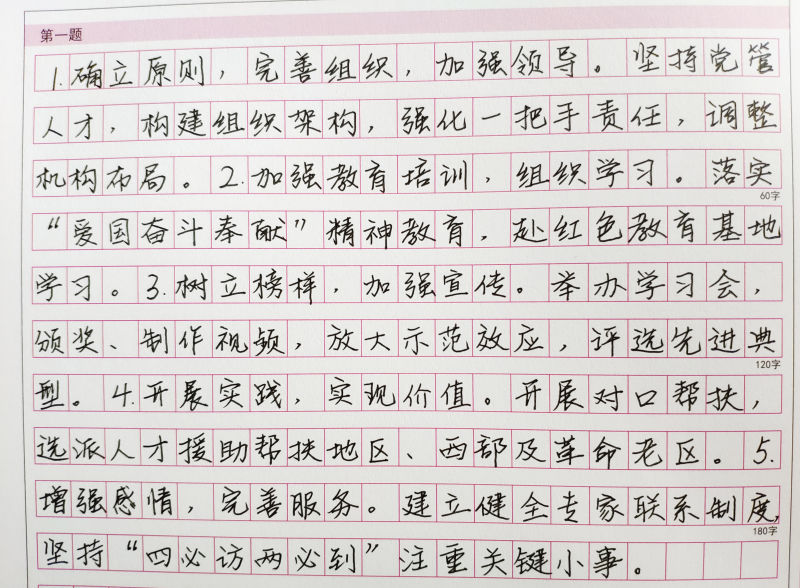 第一题
1.确立原则，完善组织，加强领导。坚持党管
人才，构建组织架构，强化一把手责任，调整
机构布局。2.加强教育培训，组织学习。落实
60字
“爱国奋斗奉献”精神教育，赴红色教育基地
学习。3.树立榜样，加强宣传。举办学习会，
颁奖、制作视频，放大示范效应，评选先进典
120字
型。4.开展实践，实现价值。开展对口帮扶，
选派人才援助帮扶地区、西部及革命老区。5.
增强感情，完善服务。建立健全专家联系制度，
180字
坚持“四必访两必到”注重关键小事。